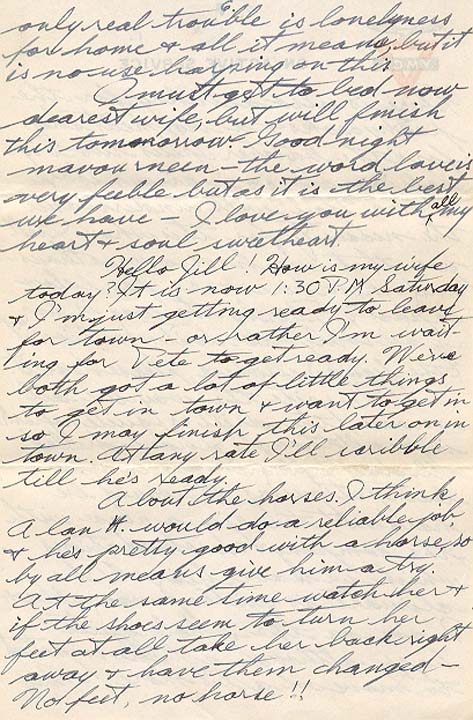 only real trouble is lonelyness
for home & all it means, but it
is no use harping on this.
I must get to bed now
dearest wife, but will finish
this tomorrow. Good night
mavourneen - the word love is
very feeble but as it is the best
we have - I love you with all my
heart & soul sweetheart.
Hello Jill! How is my wife
today? It is now 1:30 P.M. Saturday
& I'm just getting ready to leave
for town - or rather I'm wait-
ing for Pete to get ready. We've
both got a lot of little things
to get in town & want to get in
so I may finish this later on in
town. At any rate I'll scribble
till he's ready.
About the horses. I think
Alan H. would do a reliable job,
& he's pretty good with a horse, so
by all means give him a try.
At the same time watch her &
if the shoes seem to turn her
feet at all take her back right
away & have them changed -
No feet, no horse!!